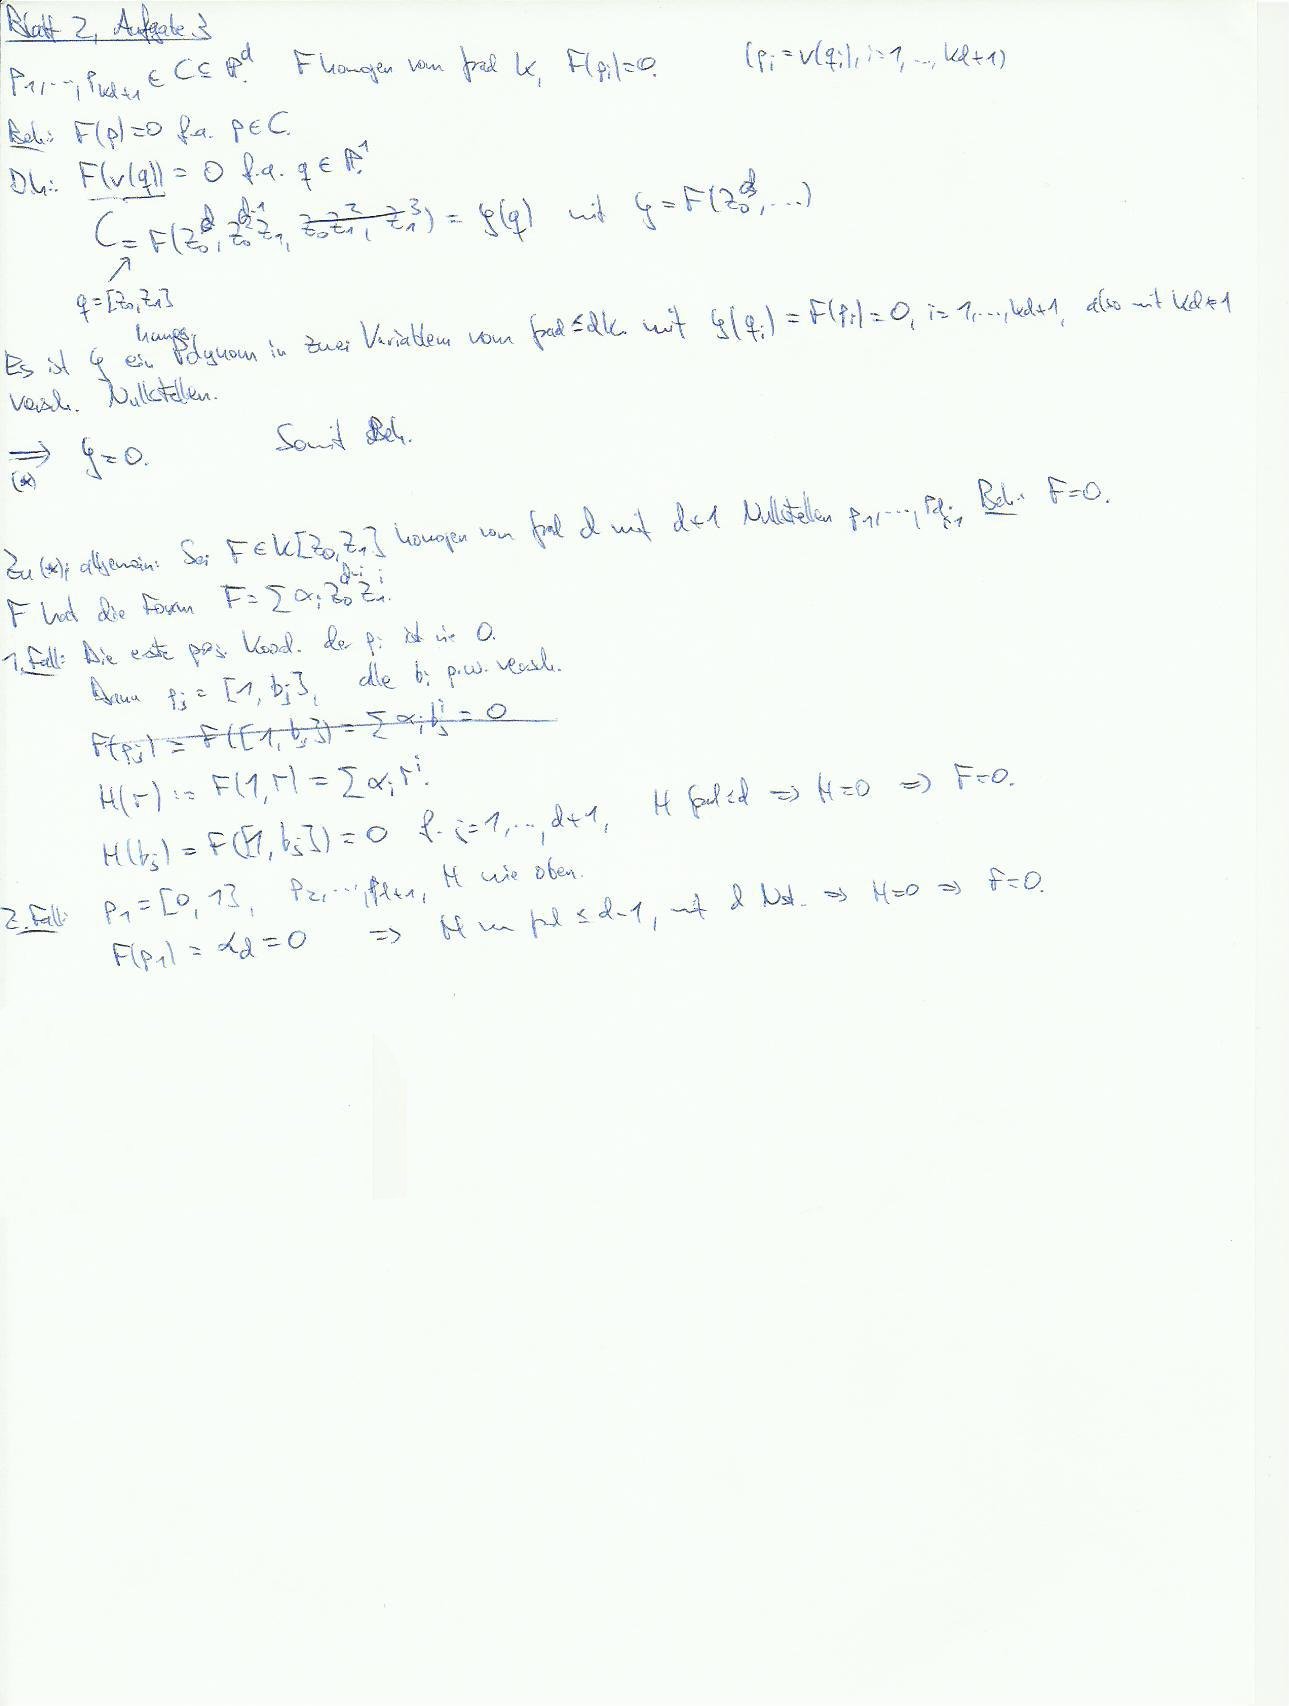 Blatt 2, Aufgabe 3
p₁, ..., p_{kd+1} ∈ C ⊆ ℙ^d. F homogen vom Grad k, F(pᵢ)=0. (pᵢ = v(qᵢ), i=1, ..., kd+1)
Beh.: F(p)=0 f.a. p∈C.
Dh.: F(v(q)) = 0 f.a. q ∈ ℙ¹
= F(Z₀^d, Z₀^{d-1}Z₁, Z₀Z₁², Z₁³) = G(q) mit G = F(Z₀^d, ...)
q = [Z₀, Z₁]
homog.
Es ist G ein Polynom in zwei Variablen vom Grad ≤ dk mit G(qᵢ) = F(pᵢ) = 0, i=1, ..., kd+1, also mit kd+1
versch. Nullstellen.
⟹ (*) G=0. Somit Beh.
Zu (*), allgemein: Sei F∈K[Z₀,Z₁] homogen vom Grad d mit d+1 Nullstellen p₁, ..., p_{d+1}. Beh.: F=0.
F hat die Form F = Σ αᵢ Z₀^{d-i} Z₁^i.
1. Fall: Die erste Koord. der pᵢ ist nie 0.
Dann pⱼ = [1, bⱼ], alle bᵢ p.w. versch.
F(pⱼ) = F([1, bⱼ]) = Σ αᵢ bⱼ^i = 0
H(r) := F(1,r) = Σ αᵢ r^i.
H(bⱼ) = F([1, bⱼ]) = 0 f. j=1, ..., d+1, H Grad ≤ d ⟹ H=0 ⟹ F=0.
2. Fall: p₁ = [0, 1], p₂, ..., p_{d+1}, H wie oben.
F(p₁) = α_d = 0 ⟹ H von Grad ≤ d-1, mit d Nst. ⟹ H=0 ⟹ F=0.